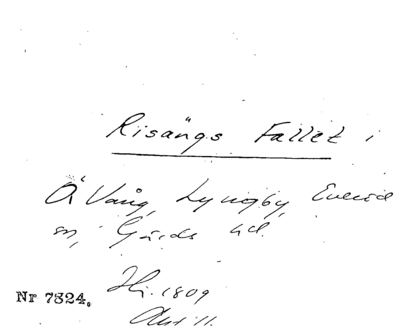 Risängs Fallet i
Å Vång, Lyngby, Everöd
sn, Gärds hd.
Nr 7824. Hj. 1809